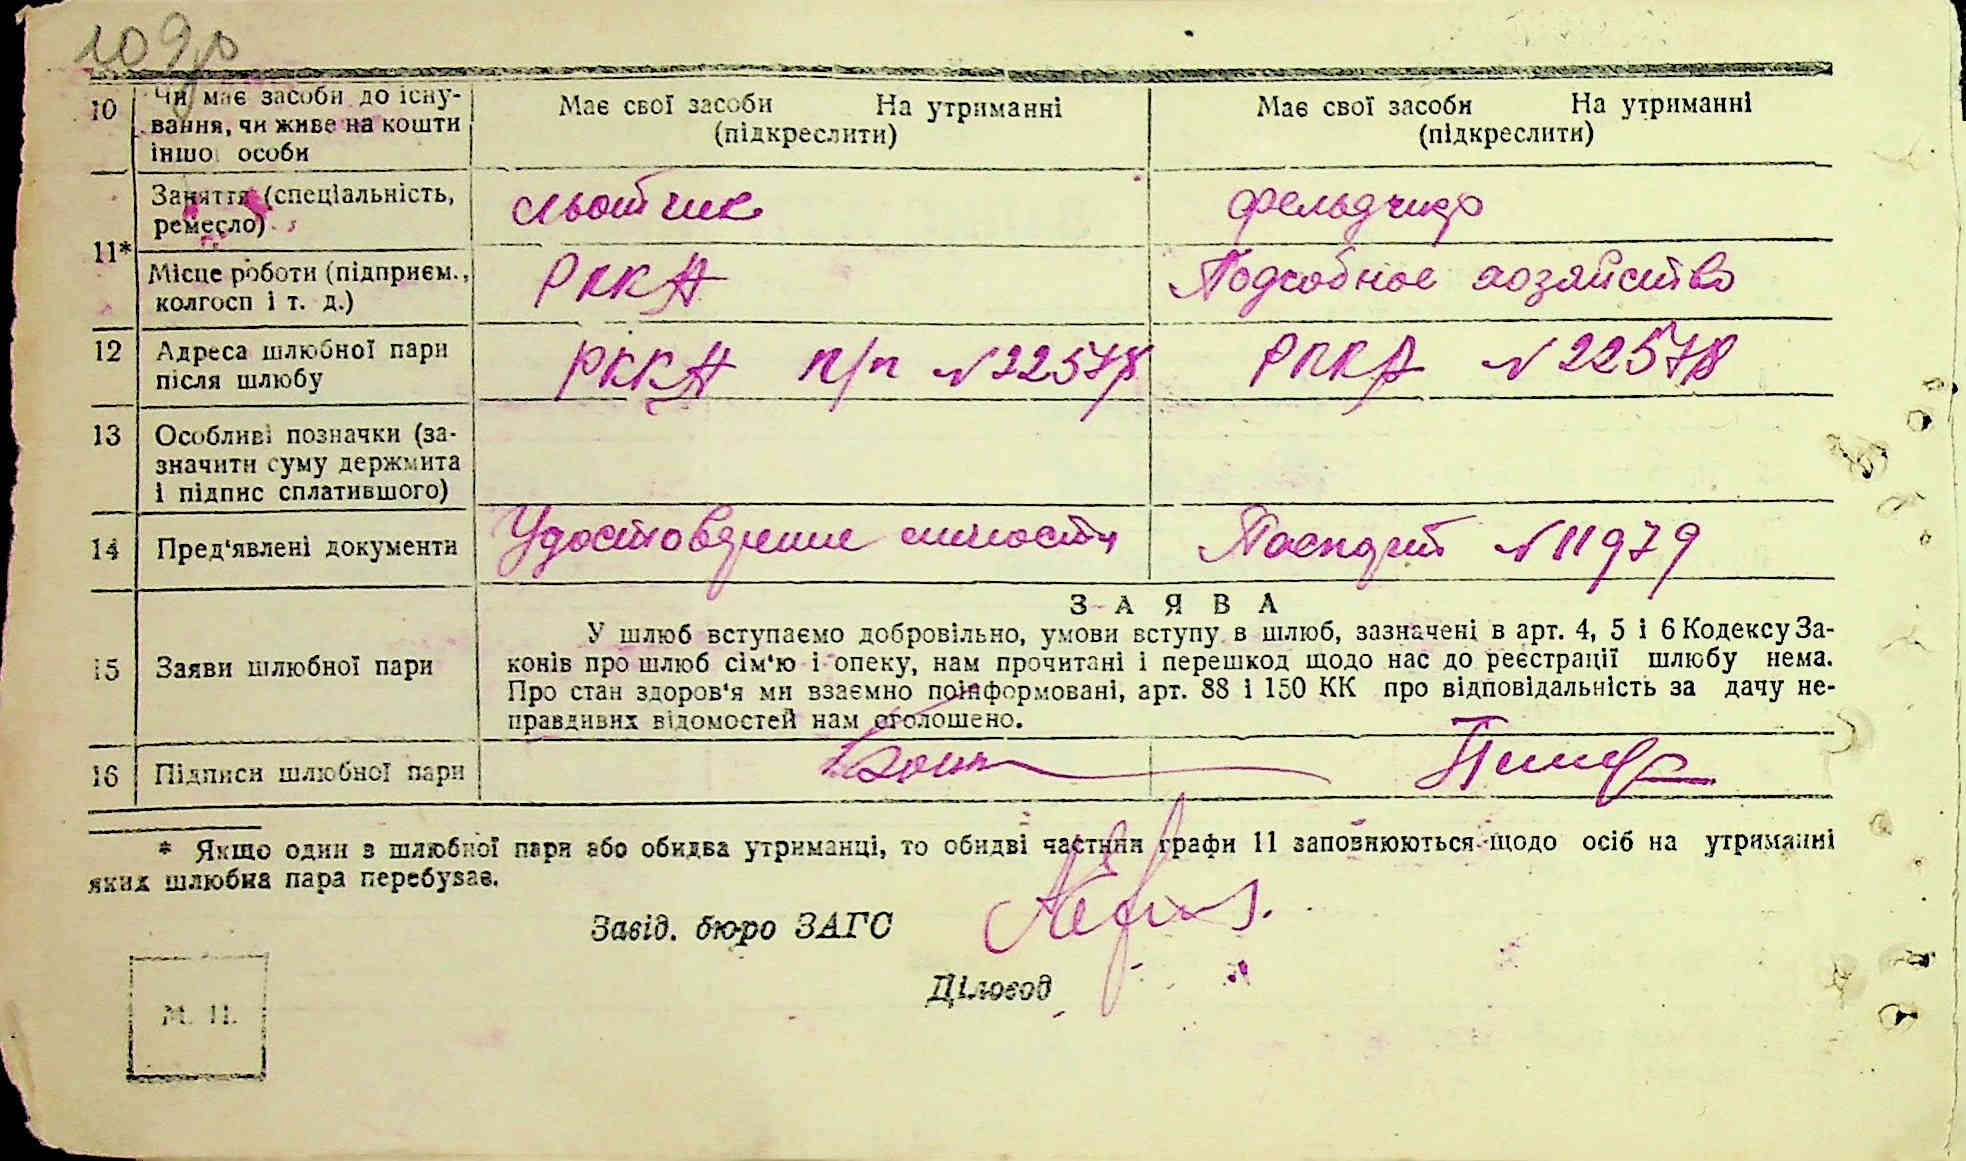 109
10 Чи має засоби до існу- Має свої засоби На утриманні Має свої засоби На утриманні
вання, чи живе на кошти (підкреслити) (підкреслити)
іншої особи
11* Заняття (спеціальність, сльотчик фельдчир
ремесло)
Місце роботи (підприєм., РККА Подсобное хозяйство
колгосп і т. д.)
12 Адреса шлюбної пари РККА п/п №22578 РККА №22578
після шлюбу
13 Особливі позначки (за-
значити суму держмита
і підпис сплатившого)
14 Пред'явлені документи Удостоверение личности Паспорт №11979
З А Я В А
У шлюб вступаємо добровільно, умови вступу в шлюб, зазначені в арт. 4, 5 і 6 Кодексу За-
15 Заяви шлюбної пари конів про шлюб сім'ю і опеку, нам прочитані і перешкод щодо нас до реєстрації шлюбу нема.
Про стан здоров'я ми взаємно поінформовані, арт. 88 і 150 КК про відповідальність за дачу не-
правдивих відомостей нам оголошено.
16 Підписи шлюбної пари
* Якщо один з шлюбної пари або обидва утриманці, то обидві частини графи 11 заповнюються щодо осіб на утриманні
яких шлюбна пара перебуває.
Завід. бюро ЗАГС
Діловод
М. П.